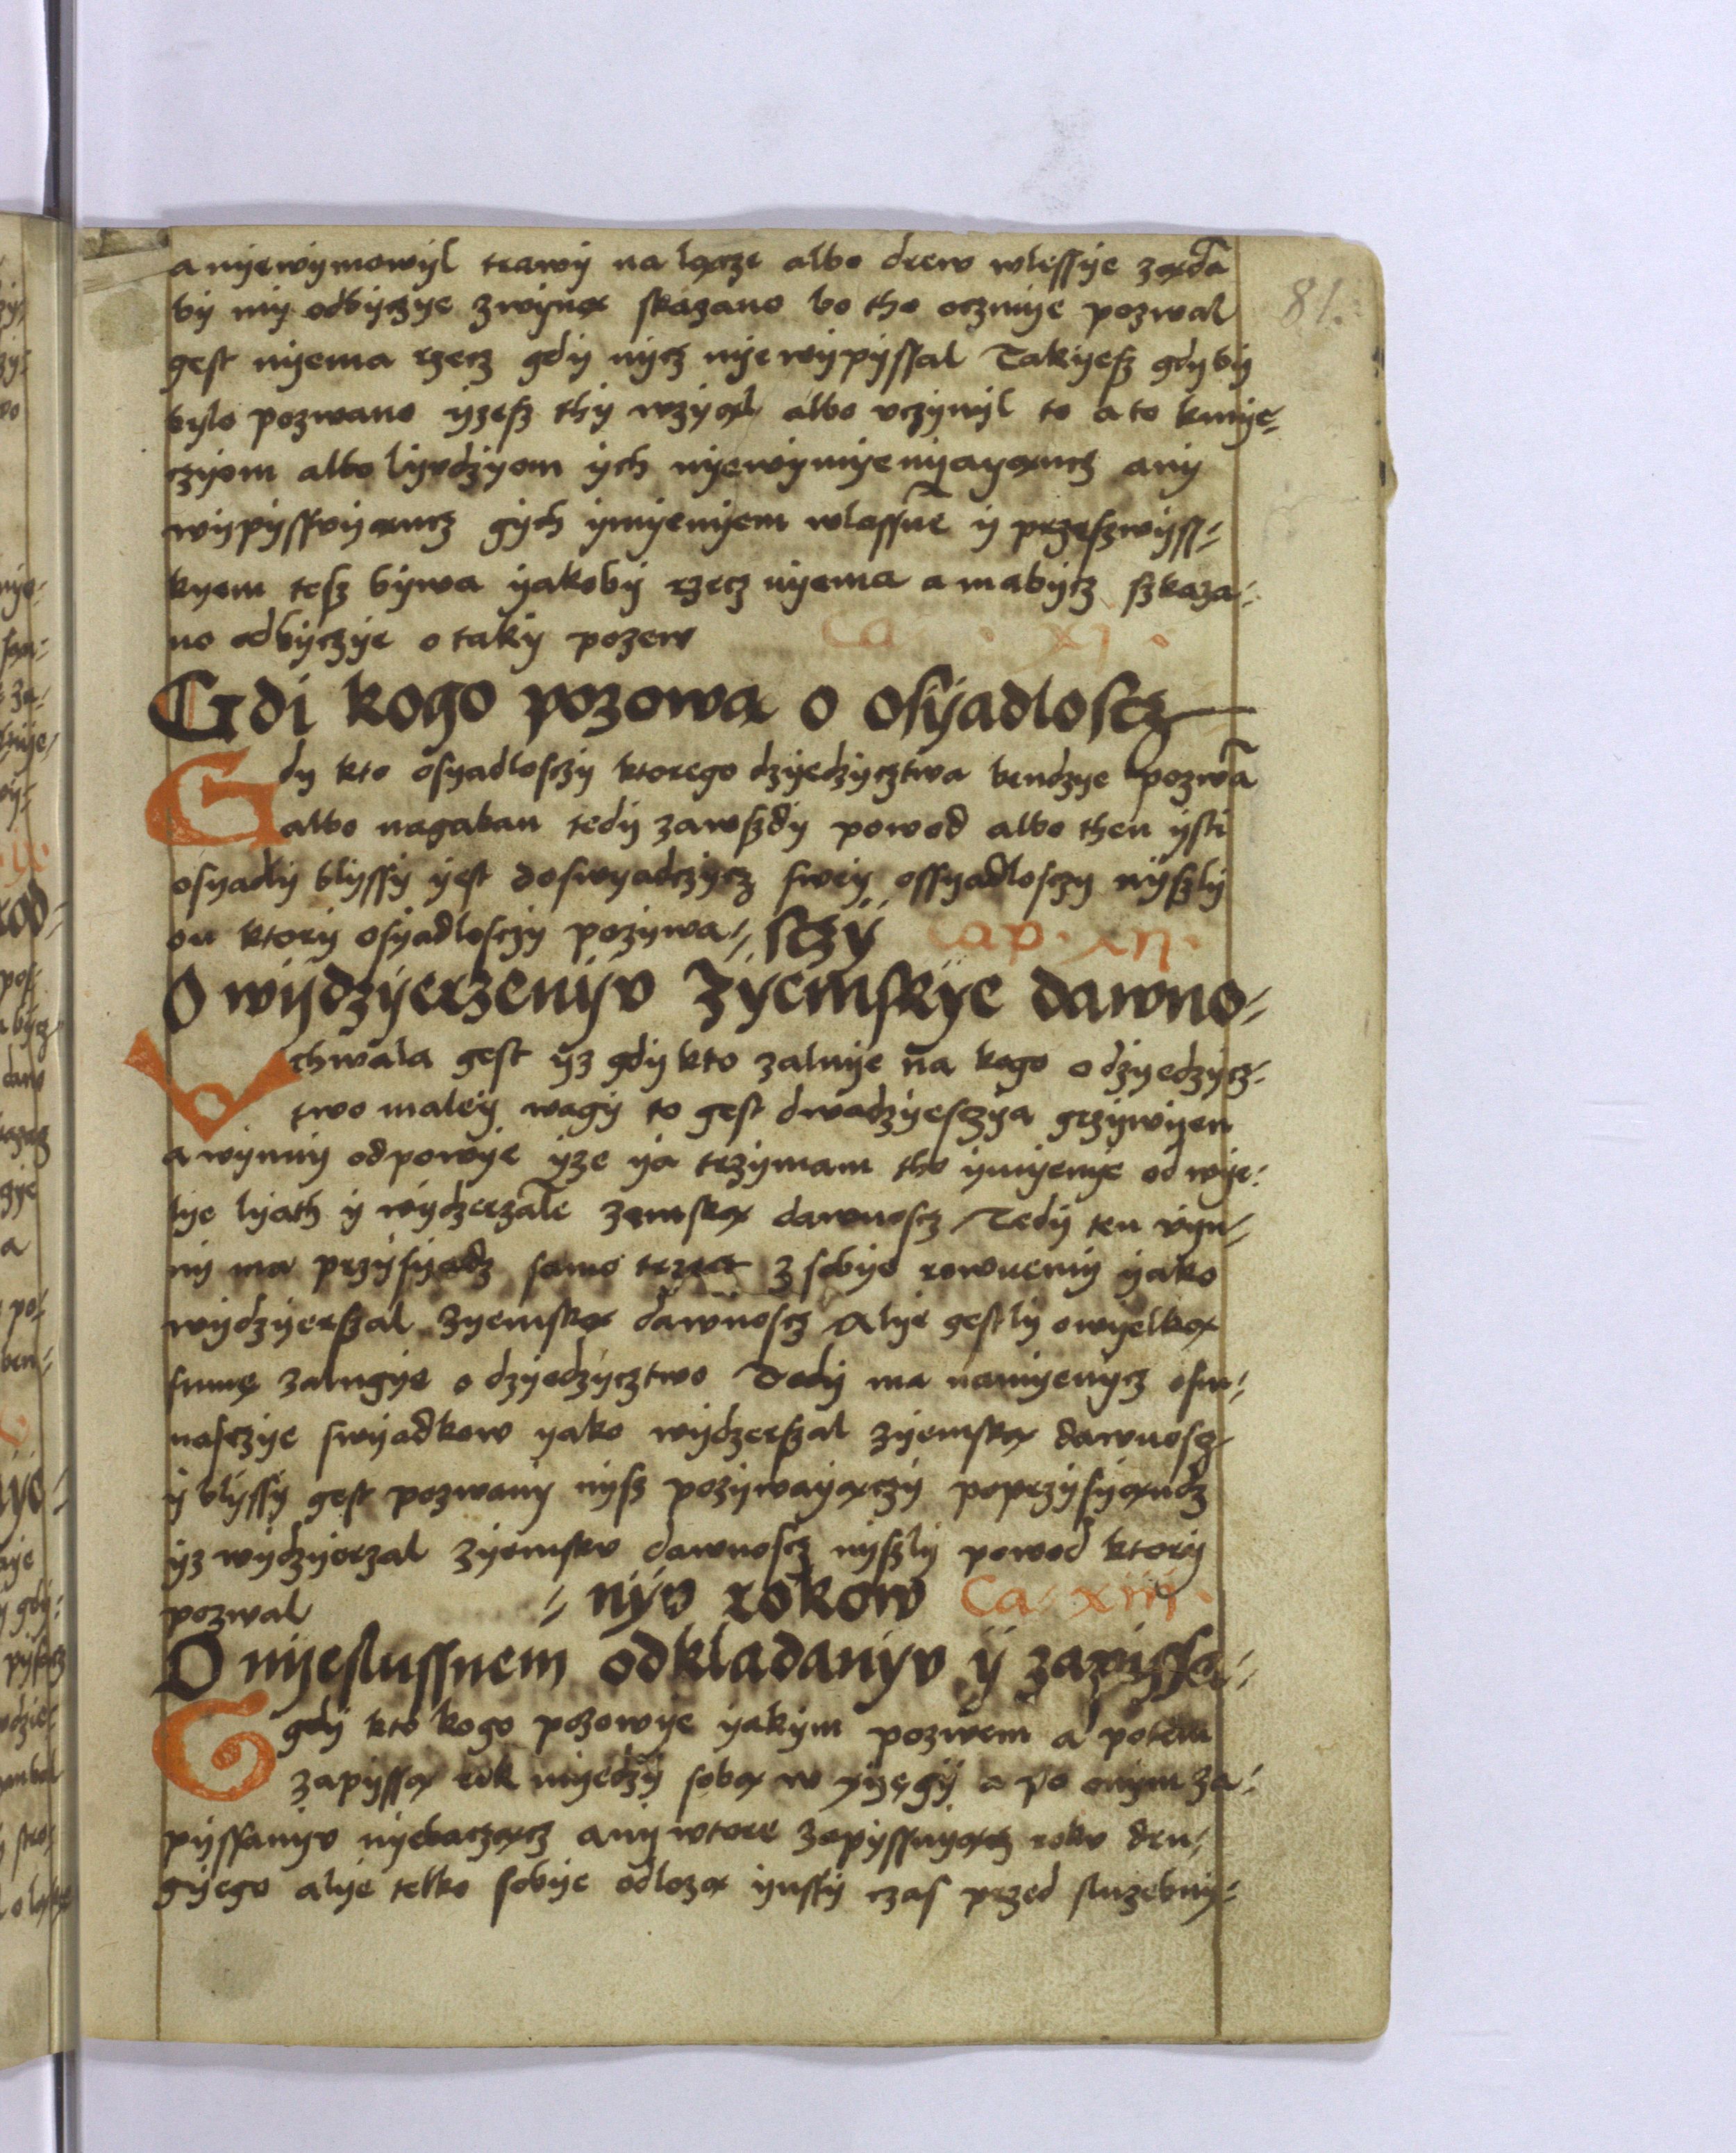 anyewymowyl trawy na lącze albo drew wlessye żąda
by my odbyczye zwyną skazano bo tho oczmye pozwal
gest nyema rzecz gdy nycz nye wypyssal Takyesz gdy by
bylo pozwano yzesz thy wzyąl albo vczynyl to a to kmye-
czyom albo lyvdzyom ych nyewymyenyayąncz any
wypyssvyąncz gych ymyenyem wlassne y przeszwyss-
kyem tesz bywa yakoby rzecz nyema a mabycz szkaza-
no odbyczye o taky pozew Ca . xj .
Gdi kogo pozową o osyadloscz
Gdy kto osyadlosczy ktorego dzyedzycztwa bendzye pozwā
albo nagaban tedy zawszdy powod albo then ysti
osyadly blyssy yest doswyadczycz swey ossyadlosczy nyszly
on ktory osyadlosczy pozywa sczy Cap . xij .
O wydzyerzenyv Zyemskye dawno-
Vchwala gest yz gdy kto zalvye na kogo o dzyedzycz-
two maley wagy to gest dwadzyesczya grzywyen
a wynny odpowye yze ya trzymam tho ymyenye od wye-
lye lyath y wydzerzale zemską dawnoscz Tedy ten vyn-
ny ma przysyądz samo trzecz z sobye rownemy yako
wydzyerszal zyemską dawnoscz Alye gestly owyelką
sumę zalugye o dzyedzycztwo Tedy ma namyenycz osm-
nasczye swyadkow yako wydzerszal zyemską dawnoscz
y blyssy gest pozwany nysz pozywayączy poprzysyąndz
yz wydzyerzal zyemskv dawnoscz nyszly powod ktory
pozwal - nyv rokow Ca . xiij .
O nyeslussnem odkladanyv y zapissa-
Ggdy kto kogo pozowye yakym pozwem a potem
zapyssą rok myedzy sobą w xyęgy a po onym za-
pyssanyv nyebacząncz any wtore zapyssuyącz rokv dru-
gyego alye telko sobye odlozą ynssy czas przed sluzebny-
81.